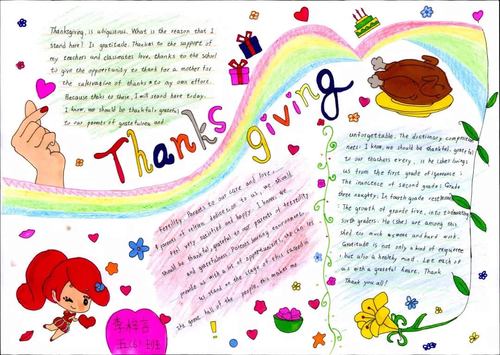 Thanksgiving, is ubiquitous. What is the reason that I
stand here? Is gratitude. Thanks to the support of
my teachers and classmates love, thanks to the school
to give the opportunity to thank for a mother for
the cultivation of thanks to my own effort.
Because thanks to have, I will stand here today.
I know, we should be thankful, grateful
to our parents of gratefulness and
Thanks giving
unforgettable. The dictionary
ness: I know, we should be thankful, grateful
to our teachers every, is he (she) brings
us from the first grade of ignorance:
The innocence of second grade; Grade
three naughty; In fourth grade
The growth of grade five, into
sixth graders. He (she) are among this
shed too much sweat and hard work.
Gratitude is not only a kind of
but also a healthy mind. Let each of
us with a grateful heart. Thank
Thank you all!
Fertility. Parents to our care and love,
parents of to us, we should
feel very satisfied and happy. I know, we
should be thankful, grateful to our parents of fertility
and gratefulness. Parents working environment,
people us with a lot of
us stand on the stage of this
she gave half of the people this makes me
李梓言
五(5)班